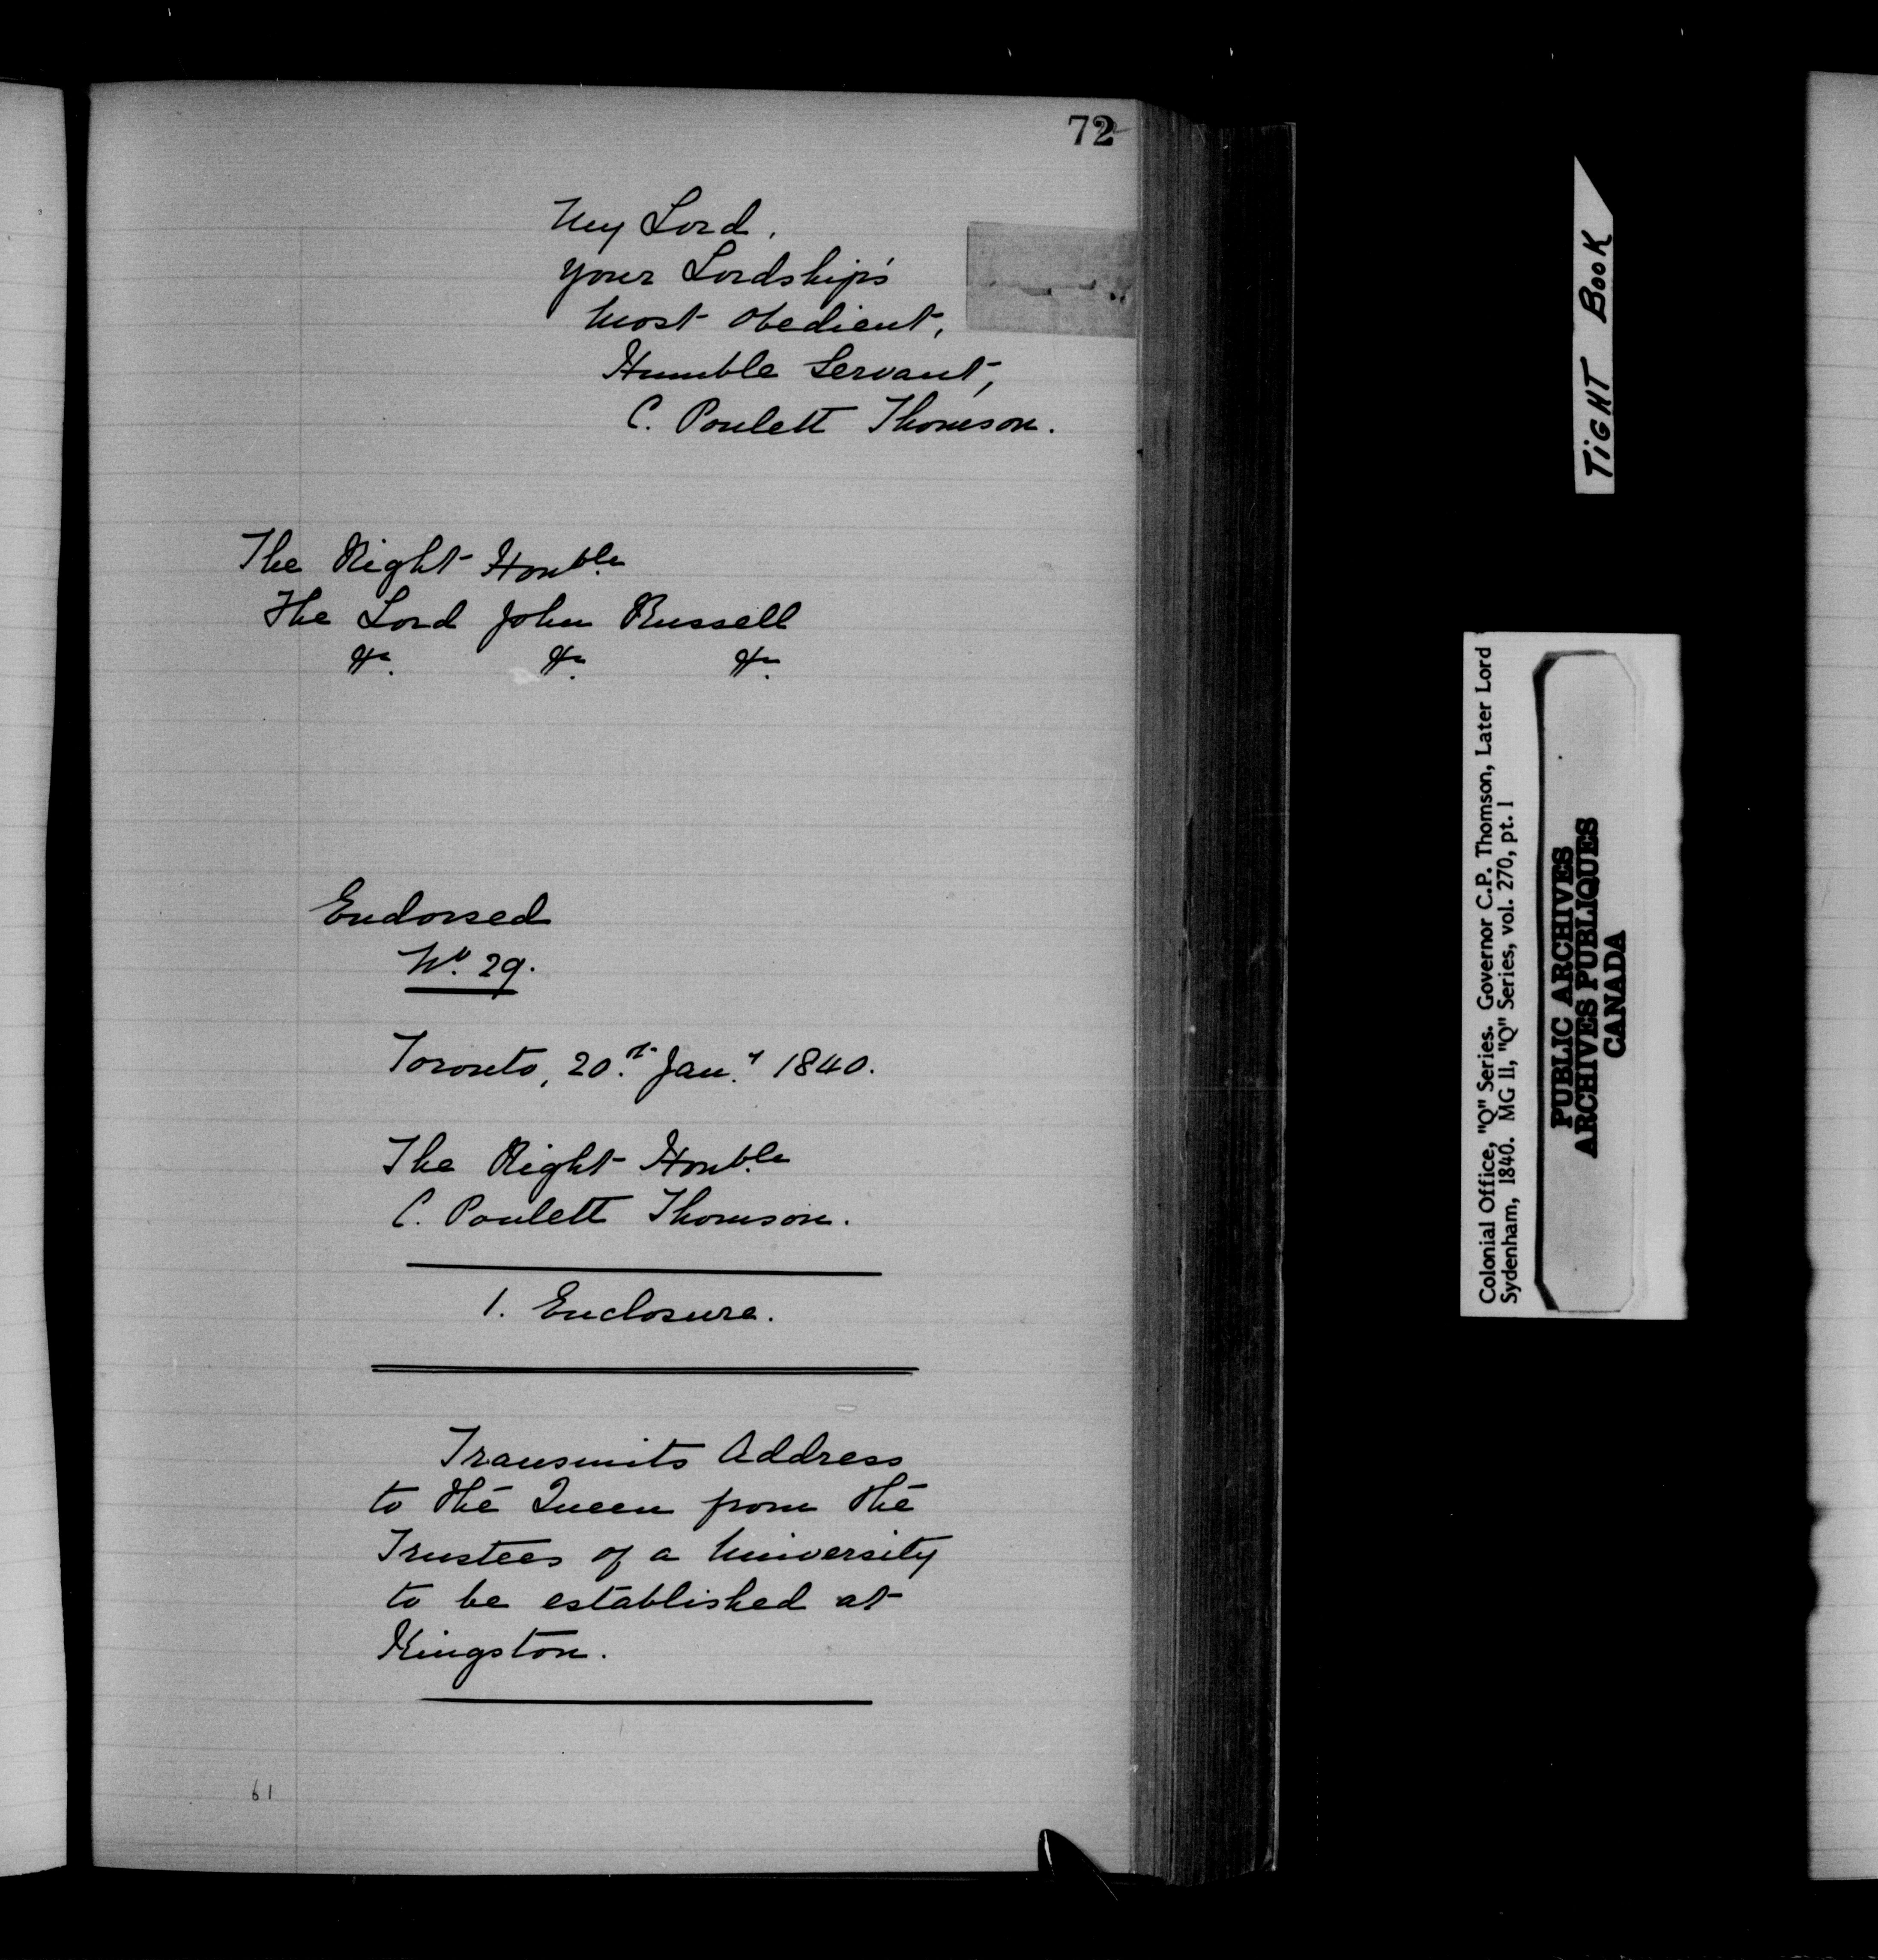 72
My Lord,
Your Lordship's
Most Obedient,
Humble Servant,
C. Poulett Thomson.
The Right Honble
The Lord John Russell
&c. &c. &c.
Endorsed
No. 29.
Toronto, 20th Jany 1840.
The Right Honble
C. Poulett Thomson.
1. Enclosure.
Transmits Address
to the Queen from the
Trustees of a University
to be established at
Kingston.
61
TIGHT BOOK
Colonial Office, "Q" Series. Governor C.P. Thomson, Later Lord
Sydenham, 1840. MG 11, "Q" Series, vol. 270, pt. 1
PUBLIC ARCHIVES
ARCHIVES PUBLIQUES
CANADA